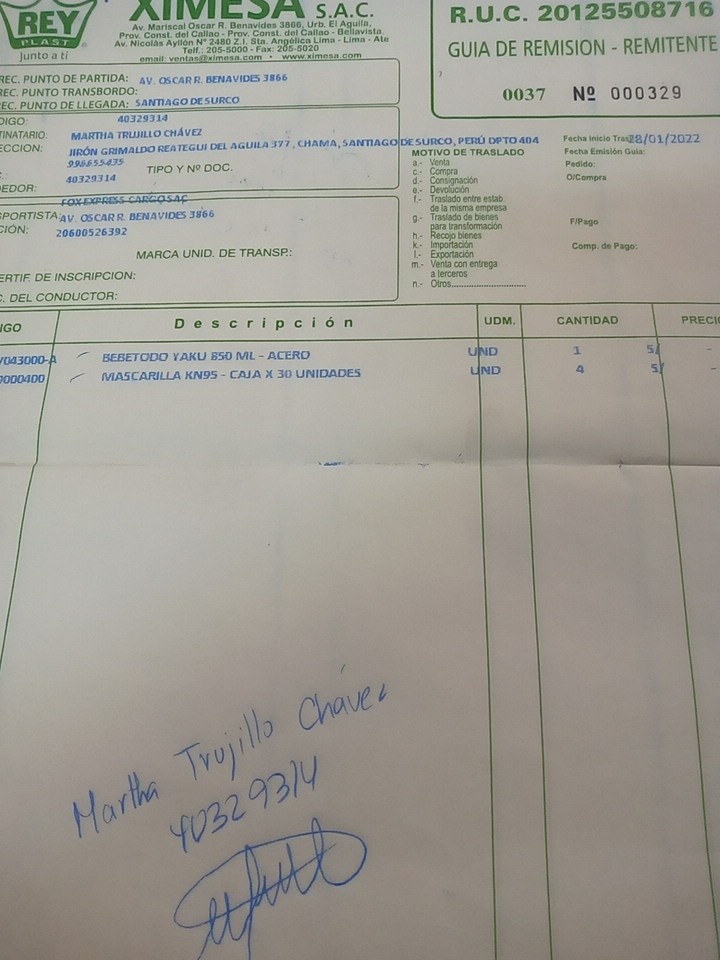 REY
PLAST
Junto a ti
XIMESA S.A.C.
Av. Mariscal Oscar R. Benavides 3866, Urb. El Aguila,
Prov. Const. del Callao - Prov. Const. del Callao - Bellavista
Av. Nicolás Ayllón Nº 2480 Z.I. Sta. Angélica Lima - Lima - Ate
Telf.: 205-5000 - Fax: 205-5020
email: ventas@ximesa.com • www.ximesa.com
R.U.C. 20125508716
GUIA DE REMISION - REMITENTE
0037 Nº 000329
REC. PUNTO DE PARTIDA: AV. OSCAR R. BENAVIDES 3866
REC. PUNTO TRANSBORDO:
REC. PUNTO DE LLEGADA: SANTIAGO DE SURCO
DIGO: 40329314
TINATARIO: MARTHA TRUJILLO CHÁVEZ
ECCION: JIRÓN GRIMALDO REATEGUI DEL AGUILA 377, CHAMA, SANTIAGO DE SURCO, PERÚ DPTO 404
996655435
TIPO Y Nº DOC.
40329314
DEDOR:
FOX EXPRESS CARGO SAC
SPORTISTA: AV. OSCAR R. BENAVIDES 3866
CIÓN: 20600526392
MARCA UNID. DE TRANSP.:
ERTIF. DE INSCRIPCION:
C. DEL CONDUCTOR:
MOTIVO DE TRASLADO
a.- Venta
c.- Compra
d.- Consignación
e.- Devolución
f.- Traslado entre estab.
de la misma empresa
g.- Traslado de bienes
para transformación
h.- Recojo bienes
k.- Importación
l.- Exportación
m.- Venta con entrega
a terceros
n.- Otros
Fecha Inicio Tras 28/01/2022
Fecha Emisión Guía:
Pedido:
O/Compra
F/Pago
Comp. de Pago:
IGO Descripción UDM. CANTIDAD PRECIO
V043000-A BEBETODO YAKU 850 ML - ACERO UND 1 S/ -
9000400 MASCARILLA KN95 - CAJA X 30 UNIDADES UND 4 S/ -
Martha Trujillo Chávez
40329314